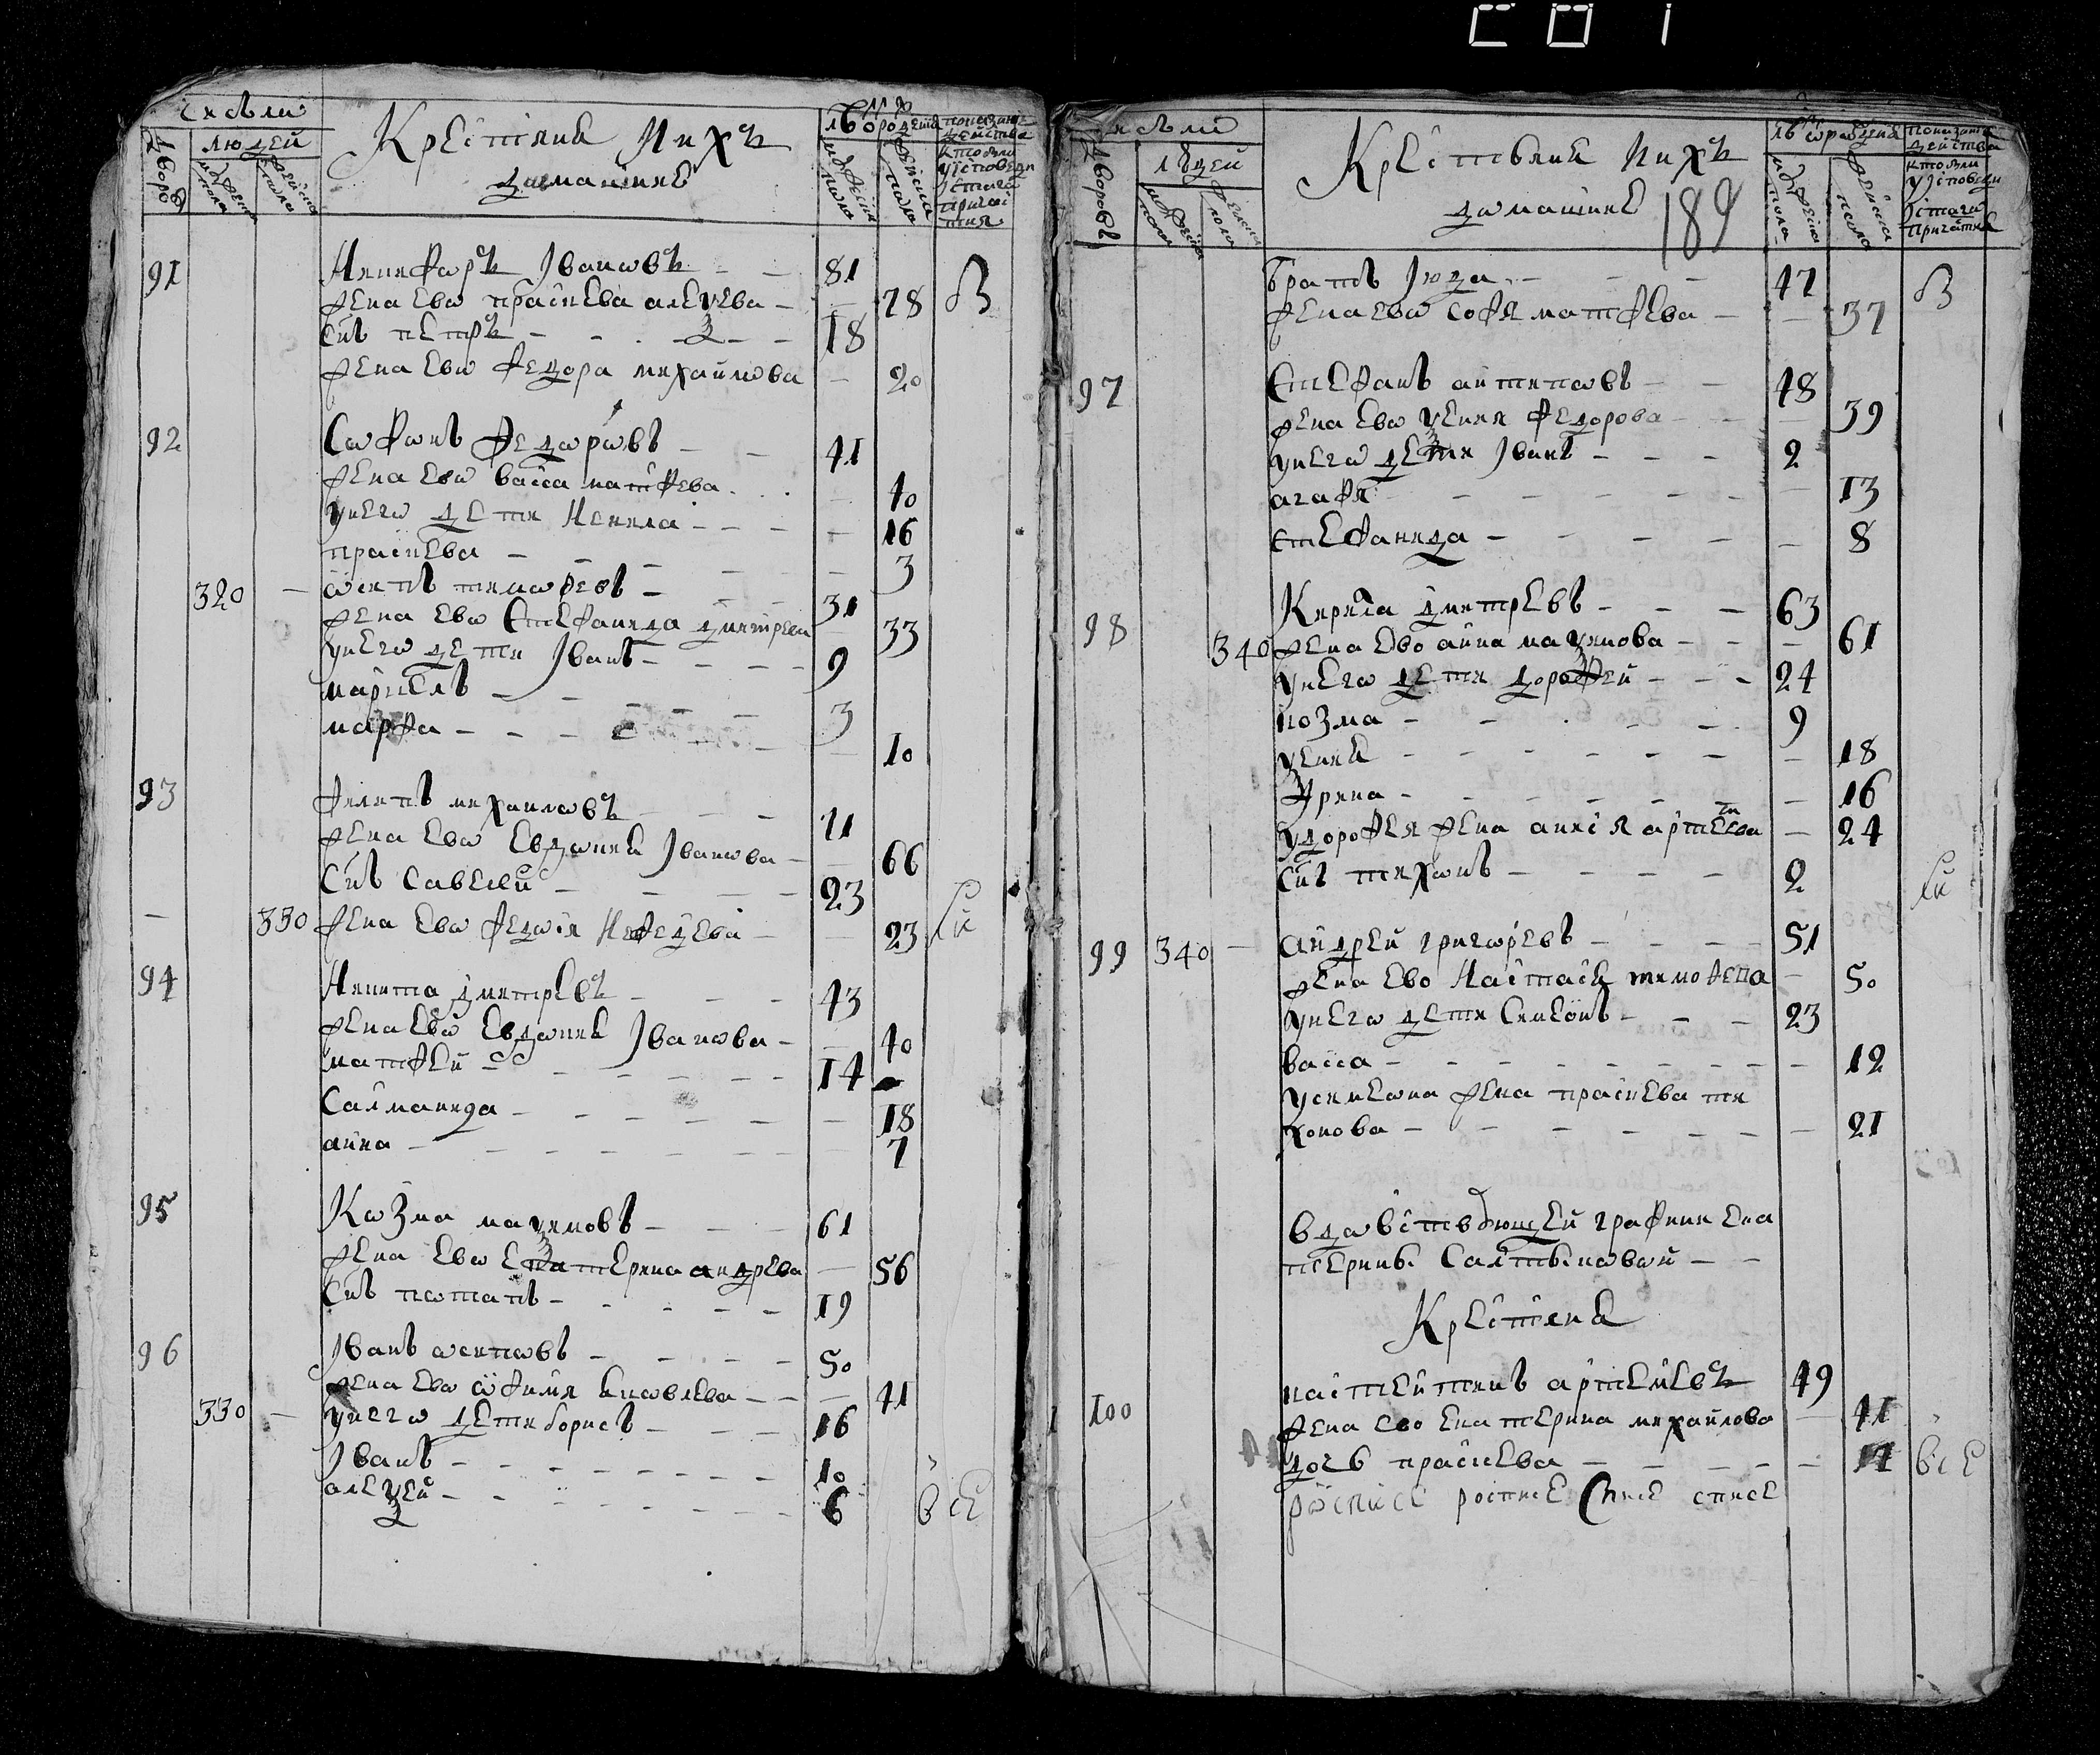 число
дворовъ
людей
мужеска пола
женска пола
Крестьяне и ихъ
домашние
лѣта от рождения
мужеска пола
женска пола
показание действа
кто были
у исповеди
и святаго
причастия
91 Никифоръ Ивановъ 81
жена ево Прасковя Алеѯева 78 В
сынъ Петръ 18
жена ево Федора Михайлова 20
92 Софонъ Федоровъ 41
жена ево Васса Матфева 40
у него дети Ненила 16
Прасковя 3
320 Осипъ Тимофевъ 31
жена ево Стефанида Дмитрева 33
у него дети Иванъ 9
Маркелъ 3
Марфа 10
93 Филипъ Михаиловъ 71
жена ево Евдокия Иванова 66
сынъ Савелий 23
330 жена ево Федосия Нефедева 23
94 Никита Дмитревъ 43
жена ево Евдокия Иванова 40
Матфей 14
Саломанида 18
Анна 7
95 Козма Маѯимовъ 61
жена ево Екатерина Андрева 56
сынъ Потапъ 19
96 Иванъ Осиповъ 50
жена ево Офимия Яковлева 41
330 у него дети Борисъ 16
Иванъ 10
Алеѯей 6 все
число
дворовъ
людей
мужеска пола
женска пола
Крестьяне и ихъ
домашние
189
лѣта от рождения
мужеска пола
женска пола
показание действа
кто были
у исповеди
и святаго
причастия
братъ Июда 47 В
жена ево Софя Матфева 37
97 Стефанъ Антиповъ 48
жена ево Ѯения Федорова 39
у него дети Иванъ 2
Агафя 13
Стефанида 8
98 Кирила Дмитревъ 63
340 жена ево Анна Маѯимова 61
у него дети Дорофей 24
Козма 9
Ѯения 18
Ирина 16
у Дорофея жена Анисия Артемева 24
сынъ Тихонъ 2
99 340 Андрей Григоревъ 51
жена ево Настасия Тимофева 50
у него дети Симеонъ 23
Васса 12
у Симеона жена Прасковя Ти
хонова 21
вдовствующей графини Ека
терины Салтыковой
Крестяне
100 Кастентинъ Артемевъ 49
жена ево Екатерина Михайлова 41
дочь Прасковя 11 все